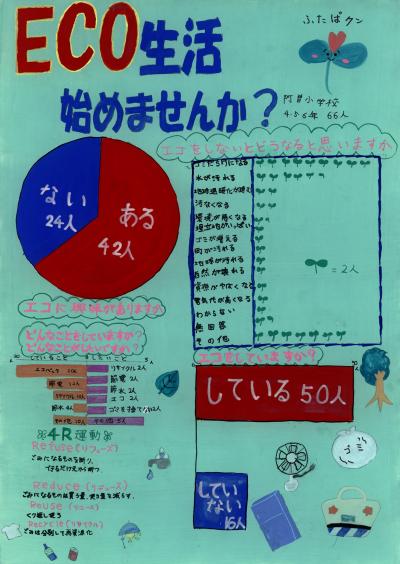 ECO生活
始めませんか?
ふたばクン
小学校
4.5.6年 66人
エコをしないとどうなると思いますか
ゴミだらけになる
水が汚れる
地球温暖化が進む
汚なくなる
環境が悪くなる
ゴミが増える
町が汚れる
地球が汚れる
自然が壊れる
電気代が高くなる
わからない
無回答
その他
=2人
ない
24人
ある
42人
エコに興味がありますか
どんなことをしていますか?
どんなことがしたいですか?
していること
したいこと
エコバック
リサイクル 2人
節電
節電 2人
リサイクル
節水 2人
エコ 2人
節水 4人
その他
4R運動
Refuse(リフューズ)
ごみになるものを断り、
できるだけ元から断つ。
Reduce(リデュース)
ごみになるものは買う量、使う量を減らす。
Reuse(リユース)
くり返し使う
Recycle(リサイクル)
ごみは分別して再資源化
エコをしていますか?
している50人
していない
16人
ゴミ